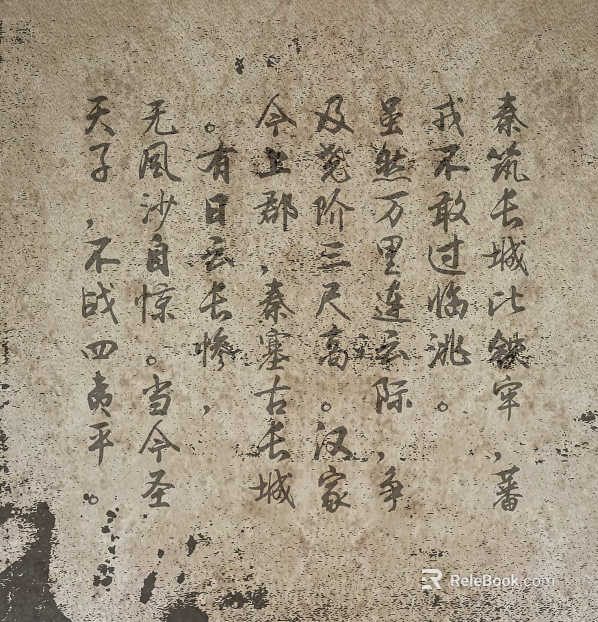 秦筑长城比铁牢，蕃
戎不敢过临洮。
虽然万里连云际，争
及尧阶三尺高。汉家
今上郡，秦塞古长城
。有日云长惨，
无风沙自惊。当今圣
天子，不战四夷平。
ReleBook.com